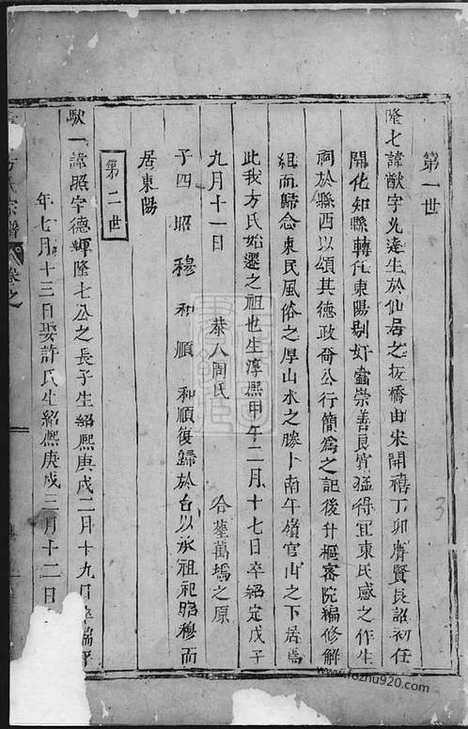 第一世
隆七諱猷字允逵生於仙居之板橋由宋開禧丁卯膺賢良詔初任
開化知縣轉任東陽剔奸蠹崇善良寬猛得宜東民感之作生
祠於縣西以頌其德政喬公行簡爲之記後升樞密院編修解
組而歸念東民風俗之厚山水之勝卜南午嶺官山之下居焉
此我方氏始遷之祖也生淳熙甲午二月十七日卒紹定戊子
九月十一日 恭人周氏 合塟萬塢之原
子四 昭 穆 和 順 和順復歸於台以承祖祀昭穆而
居東陽
第二世
欽一諱昭字德輝隆七公之長子生紹熙庚戌二月十九日卒端平
年七月十三日娶許氏生紹熙庚戌三月十二日
方氏宗譜 卷之
3
www.fozhu920.com